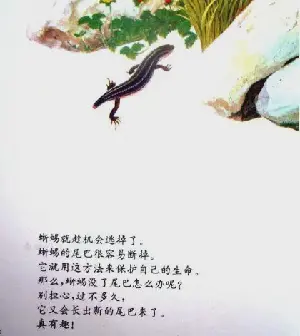 蜥蜴就趁机会逃掉了。
蜥蜴的尾巴很容易断掉。
它就用这方法来保护自己的生命。
那么，蜥蜴没了尾巴怎么办呢？
别担心，过不多久，
它又会长出新的尾巴来了。
真有趣！